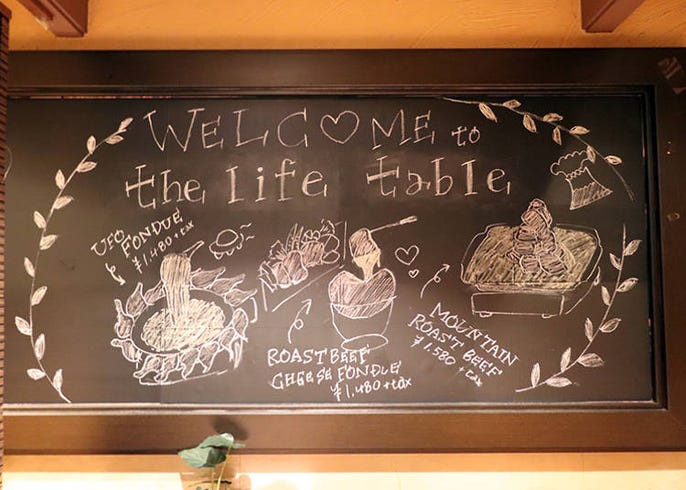 WELCOME to
the life table
UFO
FONDUE
¥1,480+tax
ROAST BEEF
CHEESE FONDUE
¥1,480+tax
MOUNTAIN
ROAST BEEF
¥1,580+tax